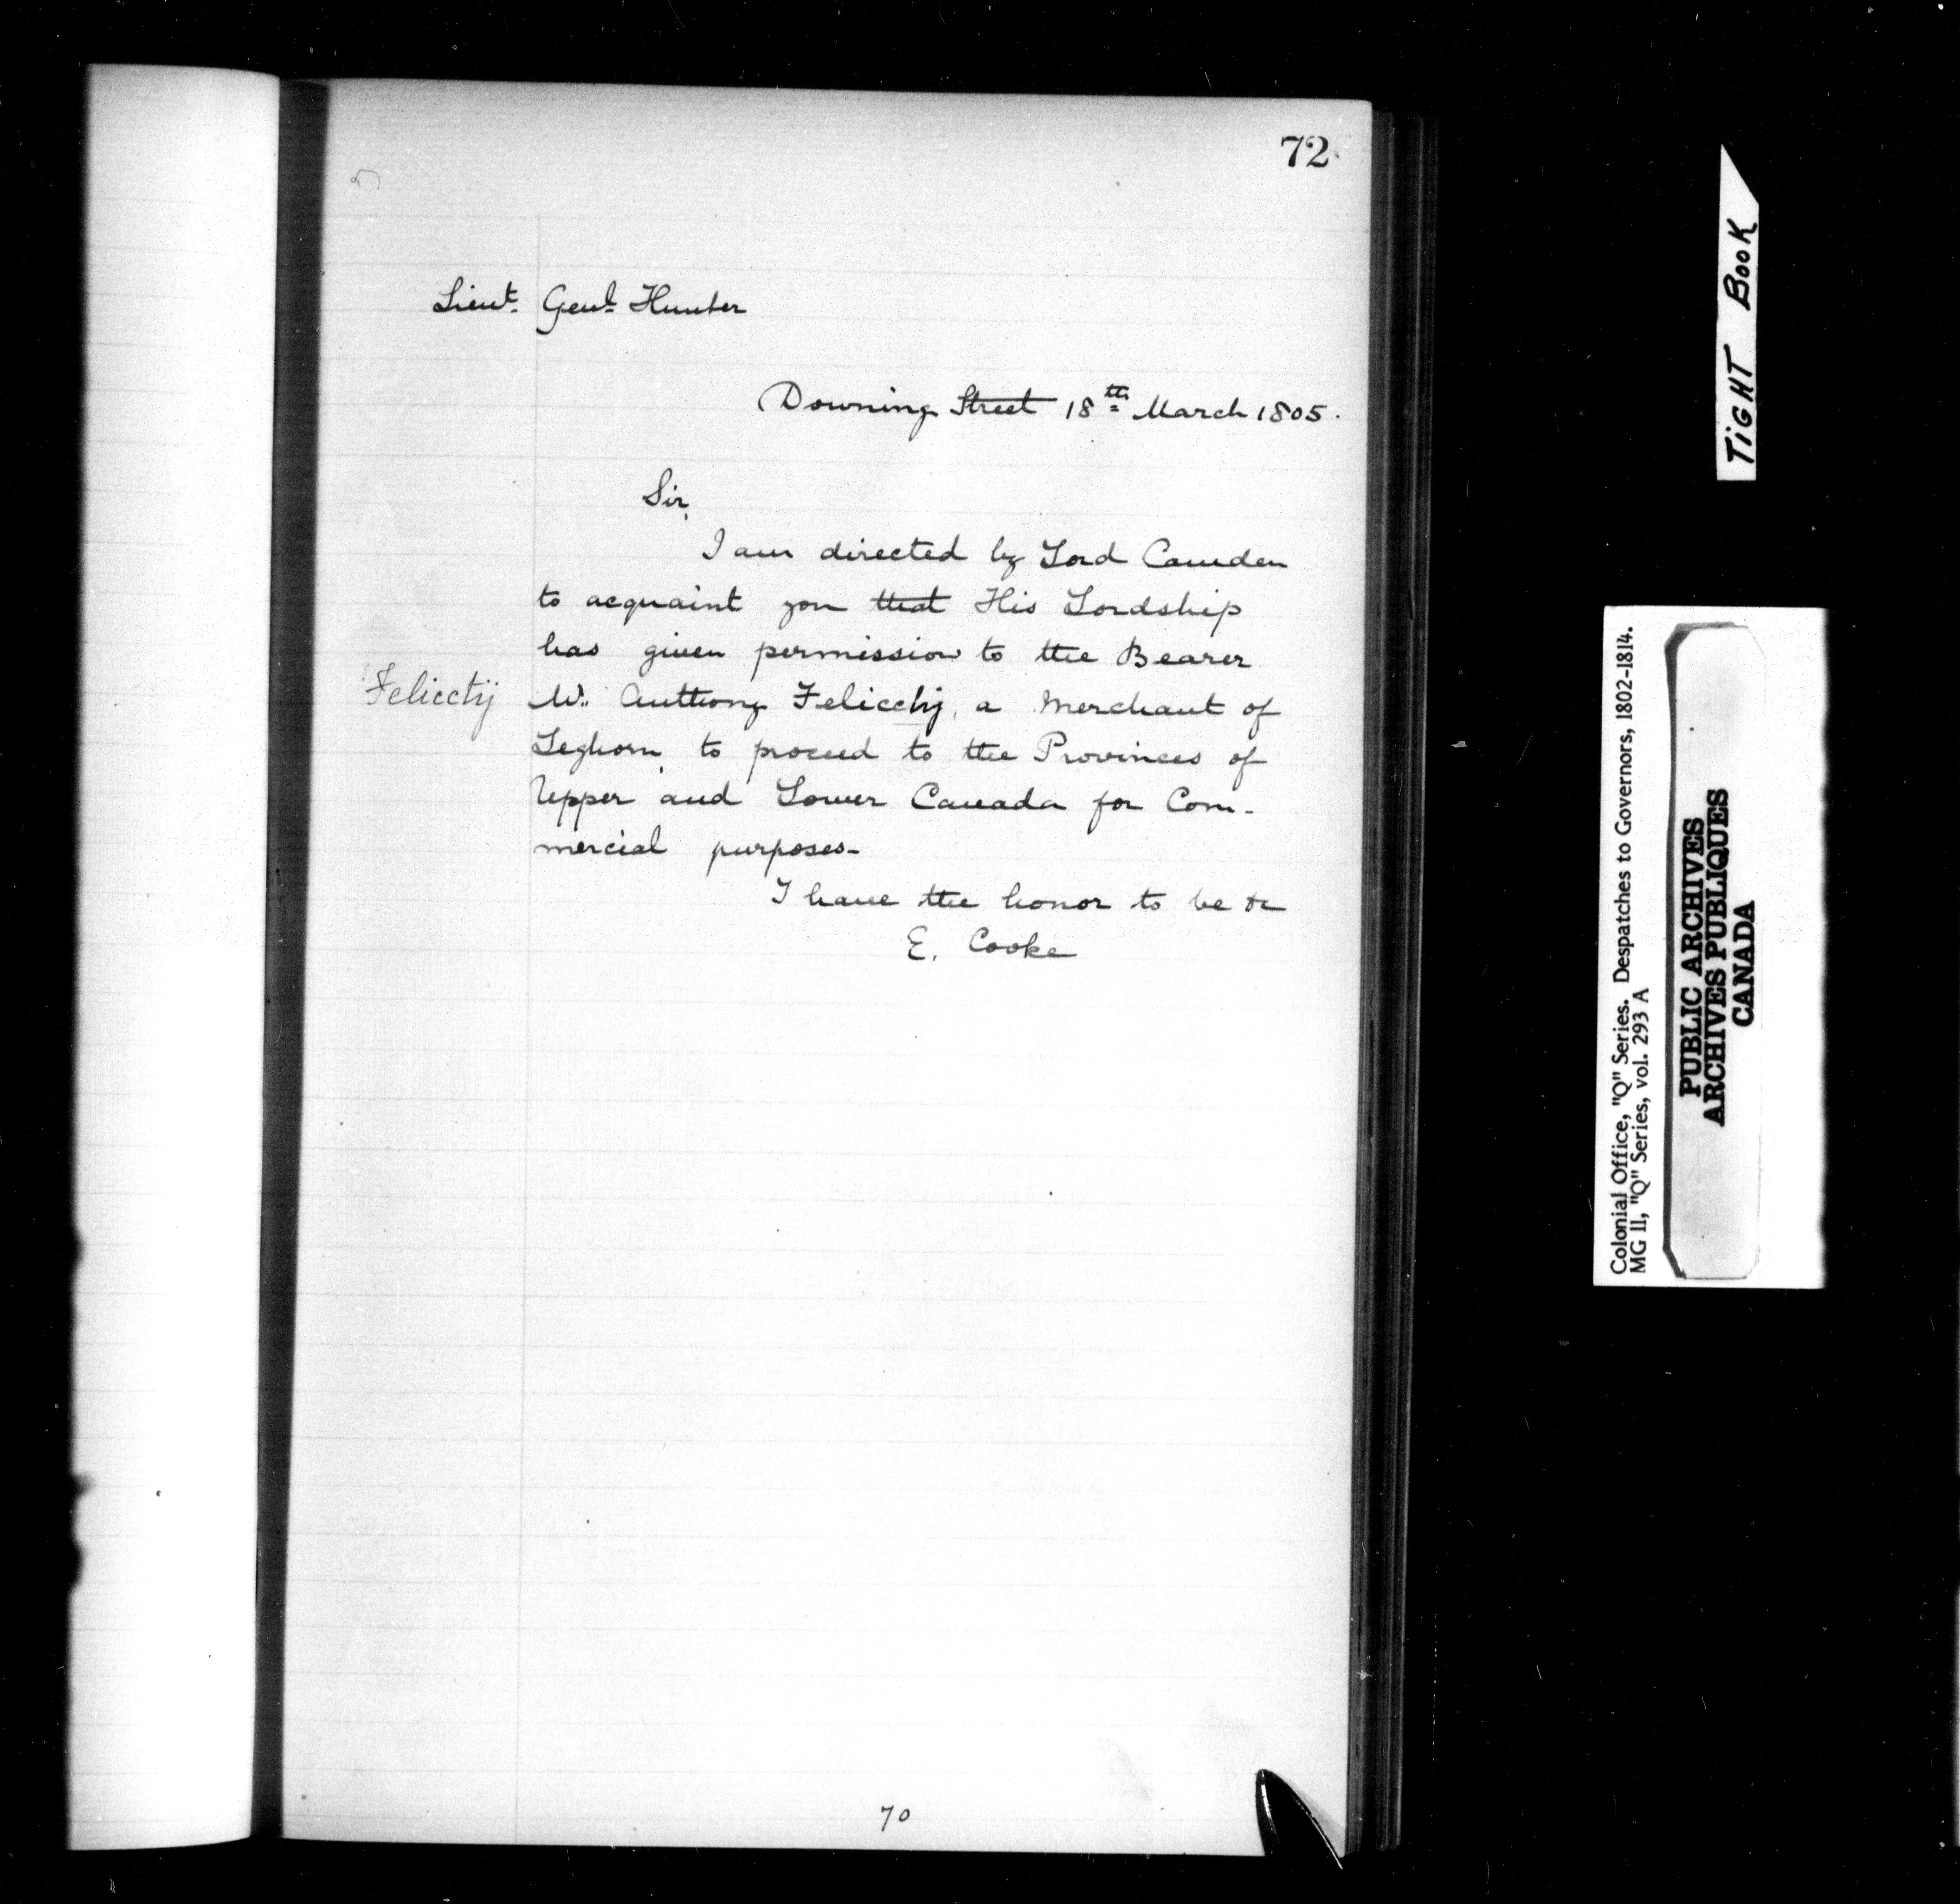 72
Lieut. Genl. Hunter
Downing Street 18th March 1805.
Sir,
I am directed by Lord Camden
to acquaint you that His Lordship
has given permission to the Bearer
Felicchj
Mr. Anthony Felicchj, a Merchant of
Leghorn, to proceed to the Provinces of
Upper and Lower Canada for Com-
mercial purposes-
I have the honor to be &c
E. Cooke
70
TIGHT BOOK
Colonial Office, "Q" Series. Despatches to Governors, 1802-1814.
MG 11, "Q" Series, vol. 293 A
PUBLIC ARCHIVES
ARCHIVES PUBLIQUES
CANADA